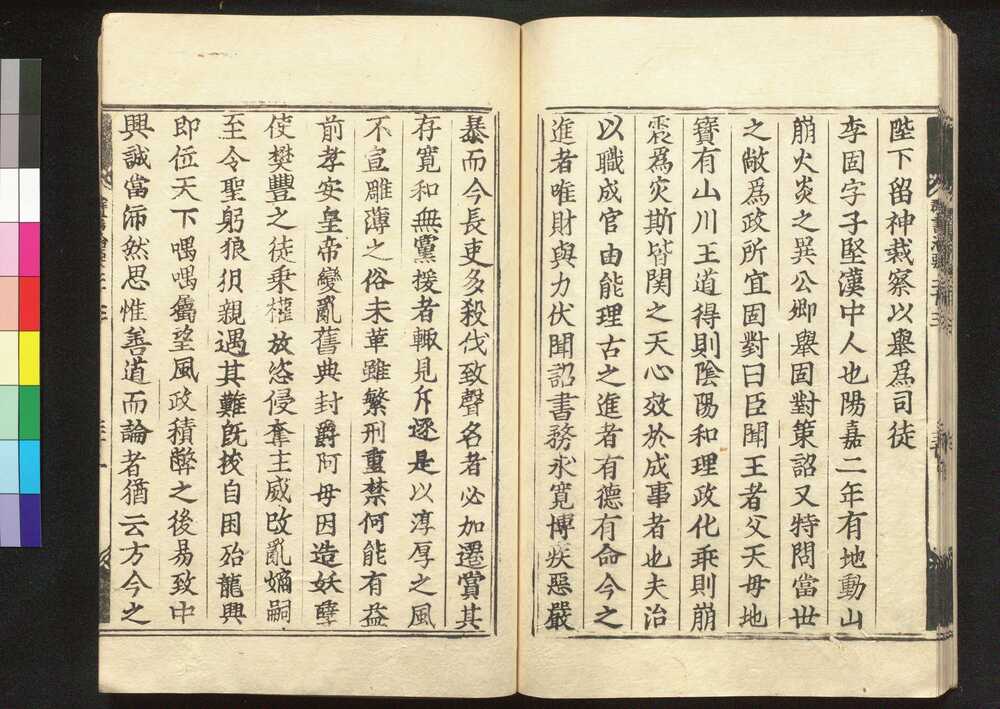 陛下留神裁察以舉爲司徒
李固字子堅漢中人也陽嘉二年有地動山
崩火災之異公卿舉固對策詔又特問當世
之敝爲政所宜固對曰臣聞王者父天母地
寶有山川王道得則陰陽和理政化乖則崩
震爲灾斯皆関之天心效於成事者也夫治
以職成官由能理古之進者有德有命今之
進者唯財與力伏聞詔書務求寬博疾惡嚴
暴而今長吏多殺伐致聲名者必加遷賞其
存寬和無黨援者輙見斥逐是以淳厚之風
不宣雕薄之俗未革雖繁刑重禁何能有益
前孝安皇帝變亂舊典封爵阿母因造妖孽
使樊豐之徒乘權放恣侵奪主威改亂嫡嗣
至令聖躬狼狽親遇其難既拔自困殆龍興
即位天下喁喁屬望風政積弊之後易致中
興誠當沛然思惟善道而論者猶云方今之